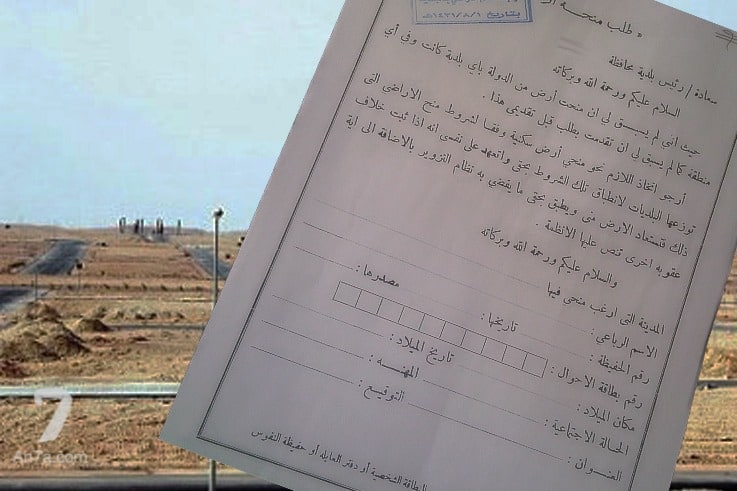 بتاريخ ١٤٣١/٨/١هـ
* طلب منحة
سعادة / رئيس بلدية محافظة
السلام عليكم ورحمة الله وبركاته
حيث اني لم يسبق لي ان منحت أرض من الدولة باي بلدية كانت وفي أي
منطقة كما لم يسبق لي ان تقدمت بطلب قبل تقديمي هذا .
أرجو اتخاذ اللازم نحو منحي أرض سكنية وفقا لشروط منح الاراضي التي
توزعها البلديات لانطباق تلك الشروط بحقي واتعهد على نفسي انه اذا ثبت خلاف
ذلك فتستعاد الارض مني ويطبق بحقي ما يقضي به نظام التزوير بالاضافة الى اية
عقوبه اخرى تنص عليها الانظمة .
والسلام عليكم ورحمة الله وبركاته
المدينة التي ارغب منحي فيها
الاسم الرباعي :
رقم الحفيظة : تاريخها : مصدرها :
رقم بطاقة الاحوال :
مكان الميلاد : تاريخ الميلاد :
الحالة الاجتماعية : المهنة :
العنوان : التوقيع :
البطاقة الشخصية أو دفتر العايله أو حفيظة النفوس
7
An7a.com